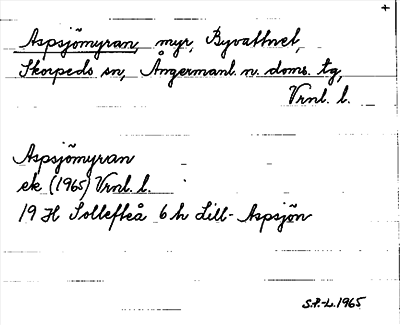 +
Aspsjömyran, myr, Byvattnet,
Skorpeds sn, Ångermanl. n. doms. tg,
Vrnl. l.
Aspsjömyran
ek (1965) Vrnl. l.
19 H Sollefteå 6 h Lill-Aspsjön
S.P.-L. 1965